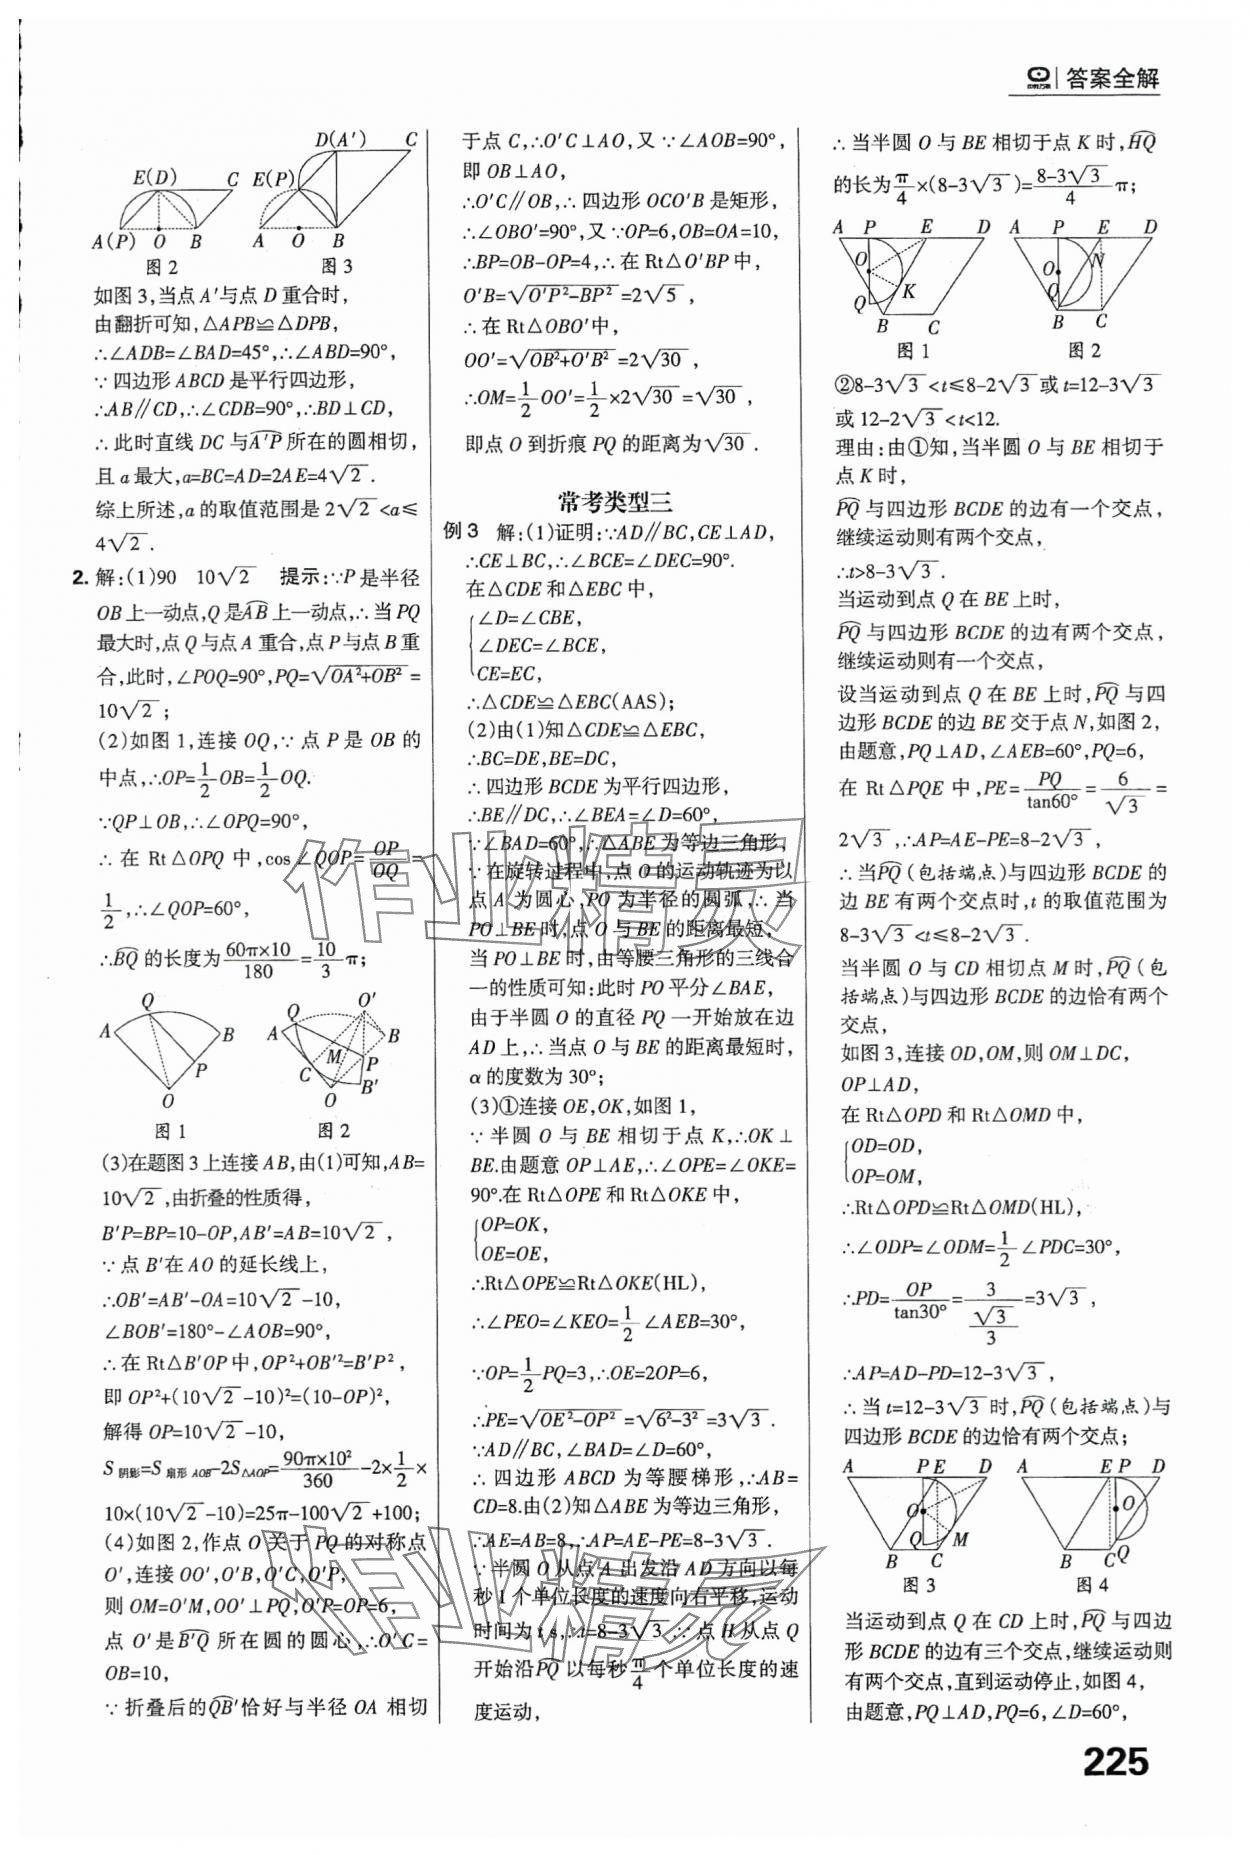 答案全解
D(A′) C
E(D) C E(P)
A(P) O B A O B
图2 图3
如图3,当点A′与点D重合时,
由翻折可知,△APB≌△DPB,
∴∠ADB=∠BAD=45°,∴∠ABD=90°,
∵四边形ABCD是平行四边形,
∴AB∥CD,∴∠CDB=90°,∴BD⊥CD,
∴此时直线DC与A′P所在的圆相切,
且a最大,a=BC=AD=2AE=4√2.
综上所述,a的取值范围是2√2<a≤
4√2.
2. 解:(1)90 10√2 提示:∵P是半径
OB上一动点,Q是AB上一动点,∴当PQ
最大时,点Q与点A重合,点P与点B重
合,此时,∠POQ=90°,PQ=√OA²+OB²=
10√2;
(2)如图1,连接OQ,∵点P是OB的
中点,∴OP=1/2OB=1/2OQ.
∵QP⊥OB,∴∠OPQ=90°,
∴在Rt△OPQ中,cos∠QOP=OP/OQ=
1/2,∴∠QOP=60°,
∴BQ的长度为60π×10/180=10/3π;
Q A B P O
图1
O′ Q A B M P C B′ O
图2
(3)在题图3上连接AB,由(1)可知,AB=
10√2,由折叠的性质得,
B′P=BP=10-OP,AB′=AB=10√2,
∵点B′在AO的延长线上,
∴OB′=AB′-OA=10√2-10,
∠BOB′=180°-∠AOB=90°,
∴在Rt△B′OP中,OP²+OB′²=B′P²,
即OP²+(10√2-10)²=(10-OP)²,
解得OP=10√2-10,
S阴影=S扇形AOB-2S△AOP=90π×10²/360-2×1/2×
10×(10√2-10)=25π-100√2+100;
(4)如图2,作点O关于PQ的对称点
O′,连接OO′,O′B,O′C,O′P,
则OM=O′M,OO′⊥PQ,O′P=OP=6,
点O′是B′Q所在圆的圆心,∴O′C=
OB=10,
∵折叠后的QB′恰好与半径OA相切
于点C,∴O′C⊥AO,又∵∠AOB=90°,
即OB⊥AO,
∴O′C∥OB,∴四边形OCO′B是矩形,
∴∠OBO′=90°,又∵OP=6,OB=OA=10,
∴BP=OB-OP=4,∴在Rt△O′BP中,
O′B=√O′P²-BP²=2√5,
∴在Rt△OBO′中,
OO′=√OB²+O′B²=2√30,
∴OM=1/2OO′=1/2×2√30=√30,
即点O到折痕PQ的距离为√30.
常考类型三
例3 解:(1)证明:∵AD∥BC,CE⊥AD,
∴CE⊥BC,∴∠BCE=∠DEC=90°.
在△CDE和△EBC中,
∠D=∠CBE,
∠DEC=∠BCE,
CE=EC,
∴△CDE≌△EBC(AAS);
(2)由(1)知△CDE≌△EBC,
∴BC=DE,BE=DC,
∴四边形BCDE为平行四边形,
∴BE∥DC,∴∠BEA=∠D=60°,
∵∠BAD=60°,∴△ABE为等边三角形,
∵在旋转过程中,点O的运动轨迹为以
点A为圆心,PO为半径的圆弧,∴当
PO⊥BE时,点O与BE的距离最短,
当PO⊥BE时,由等腰三角形的三线合
一的性质可知:此时PO平分∠BAE,
由于半圆O的直径PQ一开始放在边
AD上,∴当点O与BE的距离最短时,
α的度数为30°;
(3)①连接OE,OK,如图1,
∵半圆O与BE相切于点K,∴OK⊥
BE.由题意OP⊥AE,∴∠OPE=∠OKE=
90°.在Rt△OPE和Rt△OKE中,
OP=OK,
OE=OE,
∴Rt△OPE≌Rt△OKE(HL),
∴∠PEO=∠KEO=1/2∠AEB=30°,
∵OP=1/2PQ=3,∴OE=2OP=6,
∴PE=√OE²-OP²=√6²-3²=3√3.
∵AD∥BC,∠BAD=∠D=60°,
∴四边形ABCD为等腰梯形,∴AB=
CD=8.由(2)知△ABE为等边三角形,
∴AE=AB=8,∴AP=AE-PE=8-3√3.
∵半圆O从点A出发沿AD方向以每
秒1个单位长度的速度向右平移,运动
时间为t s,∴t=8-3√3.∵点H从点Q
开始沿PQ以每秒π/4个单位长度的速
度运动,
∴当半圆O与BE相切于点K时,HQ
的长为π/4×(8-3√3)=8-3√3/4π;
A P E D A P E D
O K Q B C O N Q B C
图1 图2
②8-3√3<t≤8-2√3或t=12-3√3
或12-2√3<t<12.
理由:由①知,当半圆O与BE相切于
点K时,
PQ与四边形BCDE的边有一个交点,
继续运动则有两个交点,
∴t>8-3√3.
当运动到点Q在BE上时,
PQ与四边形BCDE的边有两个交点,
继续运动则有一个交点,
设当运动到点Q在BE上时,PQ与四
边形BCDE的边BE交于点N,如图2,
由题意,PQ⊥AD,∠AEB=60°,PQ=6,
在Rt△PQE中,PE=PQ/tan60°=6/√3=
2√3,∴AP=AE-PE=8-2√3,
∴当PQ(包括端点)与四边形BCDE的
边BE有两个交点时,t的取值范围为
8-3√3<t≤8-2√3.
当半圆O与CD相切点M时,PQ(包
括端点)与四边形BCDE的边恰有两个
交点,
如图3,连接OD,OM,则OM⊥DC,
OP⊥AD,
在Rt△OPD和Rt△OMD中,
OD=OD,
OP=OM,
∴Rt△OPD≌Rt△OMD(HL),
∴∠ODP=∠ODM=1/2∠PDC=30°,
∴PD=OP/tan30°=3/(√3/3)=3√3,
∴AP=AD-PD=12-3√3,
∴当t=12-3√3时,PQ(包括端点)与
四边形BCDE的边恰有两个交点;
A P E D A E P D
O Q M B C O B C Q
图3 图4
当运动到点Q在CD上时,PQ与四边
形BCDE的边有三个交点,继续运动则
有两个交点,直到运动停止,如图4,
由题意,PQ⊥AD,PQ=6,∠D=60°,
225
作业精灵
作业精灵